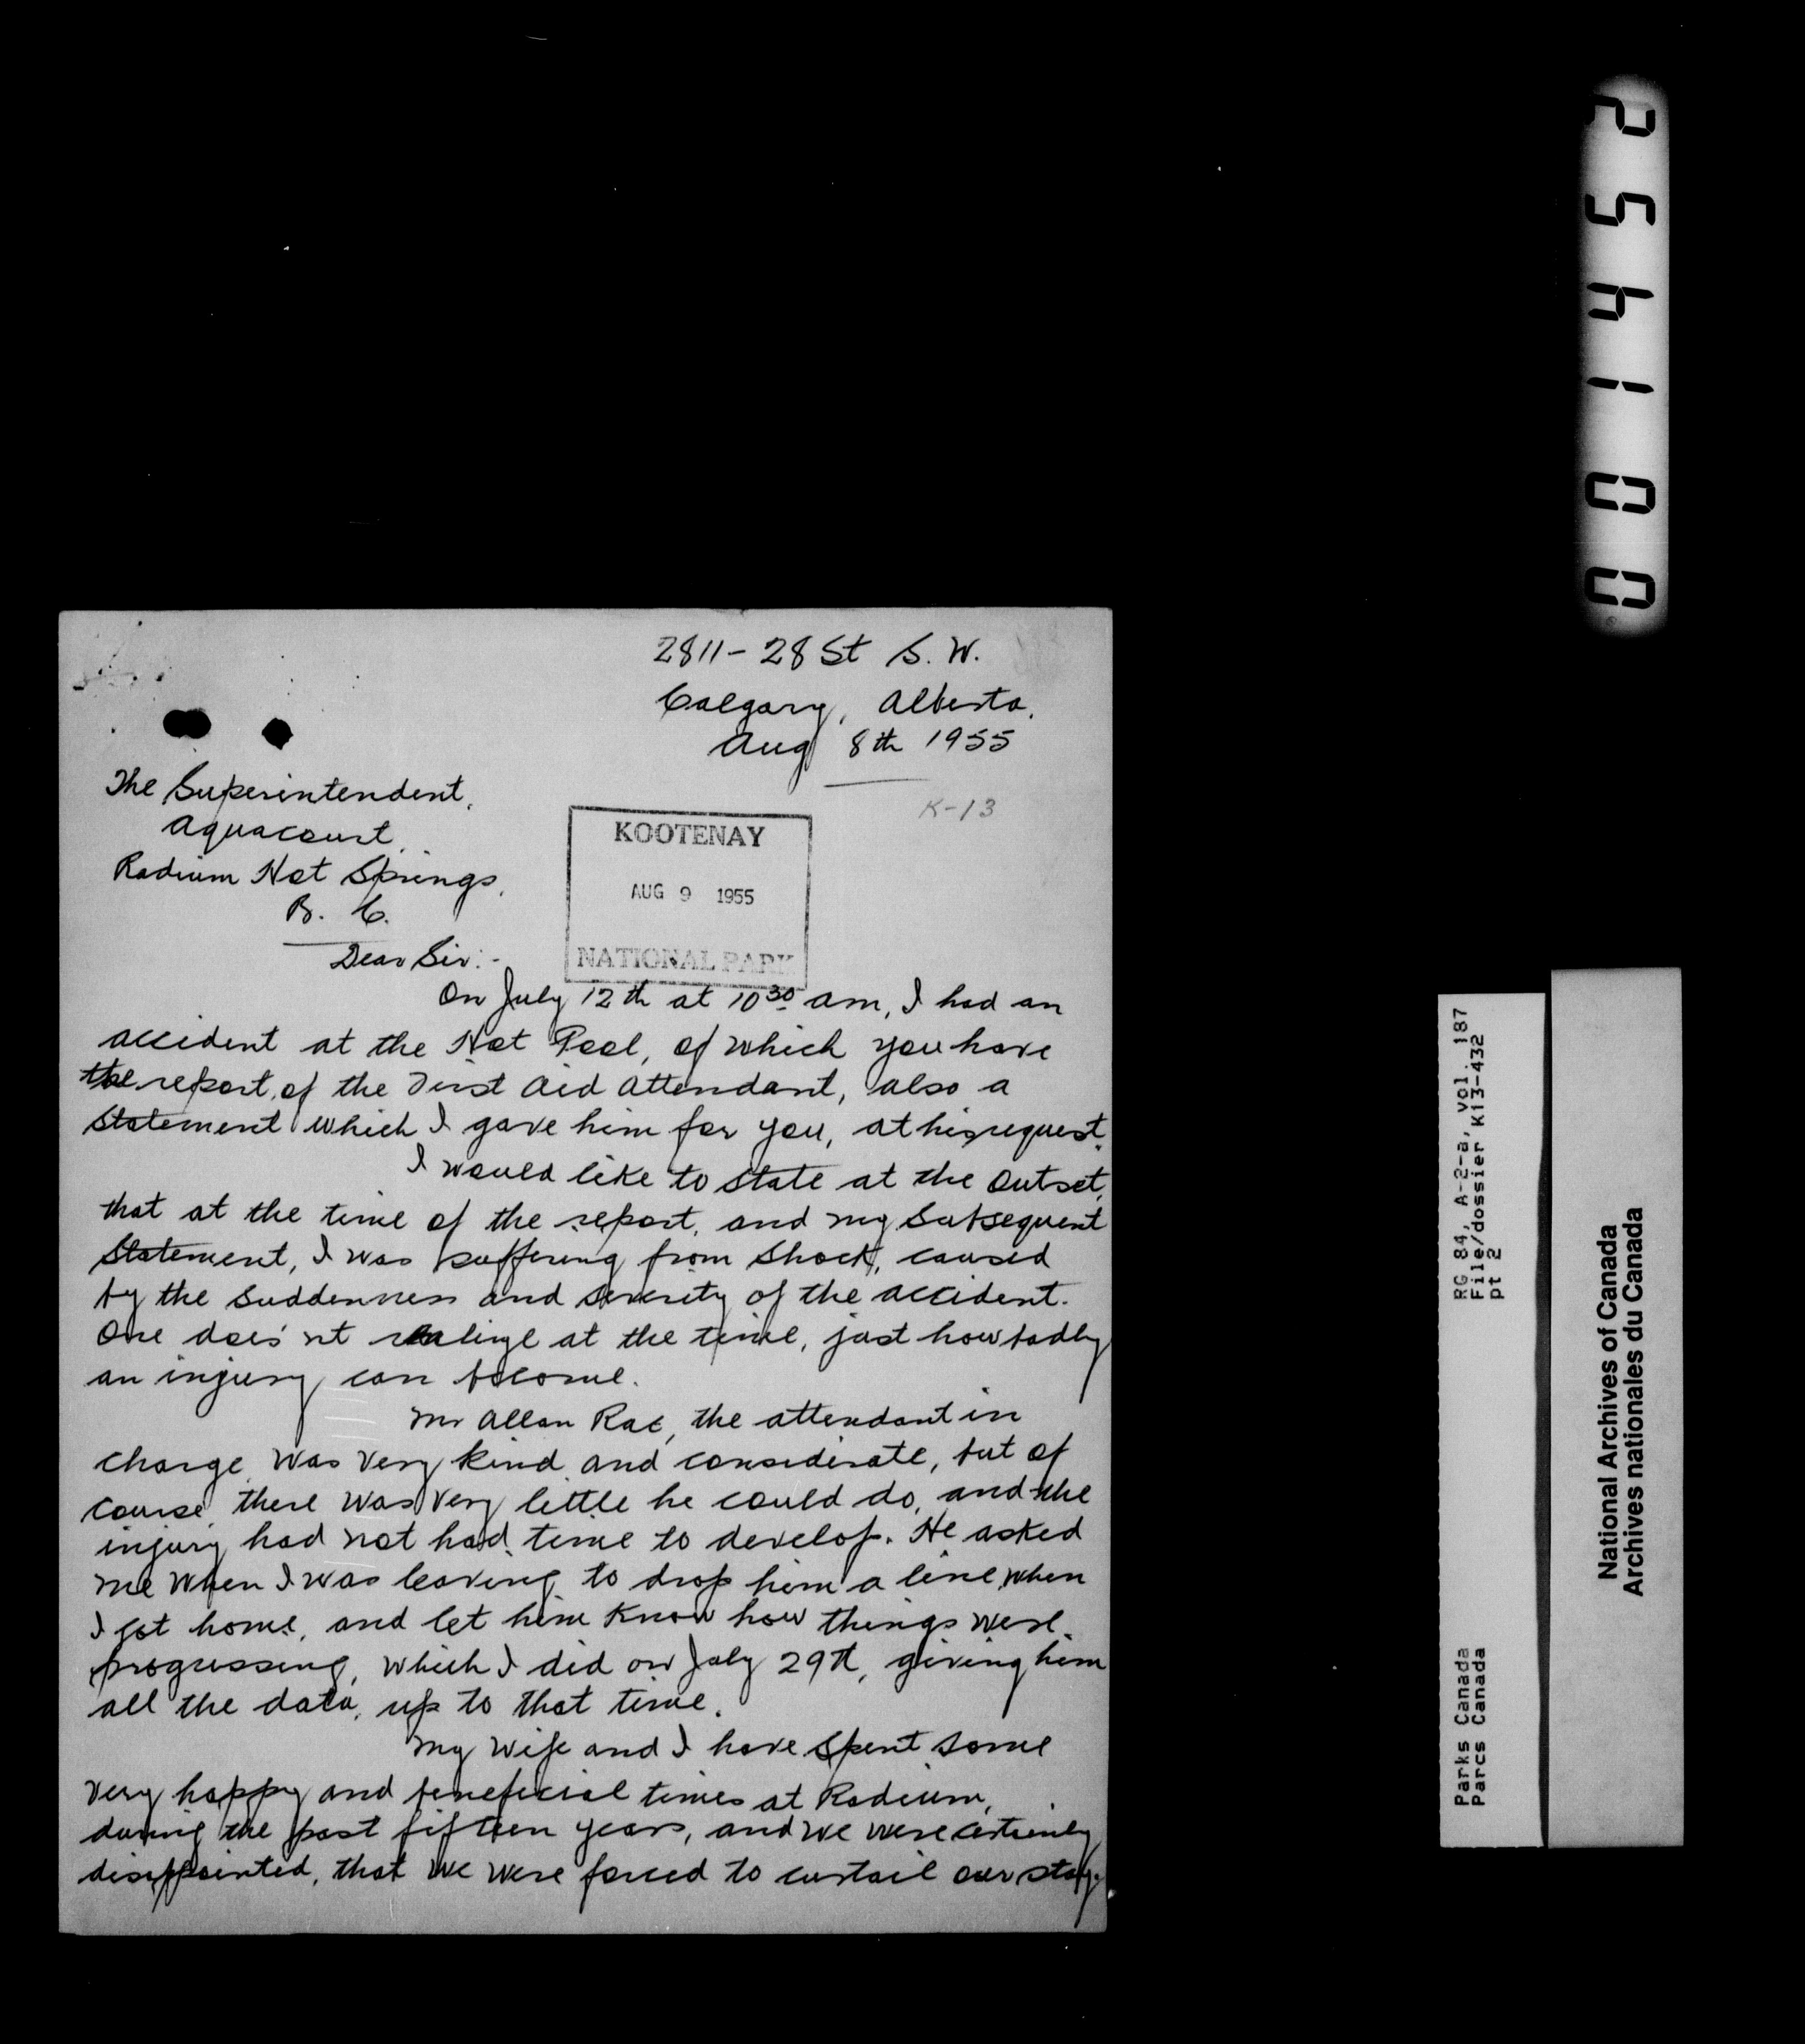 2811 - 28 St S. W.
Calgary, Alberta.
Aug 8th 1955
K-13
The Superintendent,
Aquacourt,
Radium Hot Springs,
B. C.
KOOTENAY
AUG 9 1955
NATIONAL PARK
Dear Sir:-
On July 12th at 10 30 am, I had an
accident at the Hot Pool, of which you have
the report, of the First Aid Attendant, also a
statement which I gave him for you, at his request.
I would like to state at the outset,
that at the time of the report, and my subsequent
statement, I was suffering from shock, caused
by the suddenness and severity of the accident.
One does'nt realize at the time, just how badly
an injury can become.
Mr Allan Rae, the attendant in
charge, was very kind and considerate, but of
course, there was very little he could do, and the
injury had not had time to develop. He asked
me when I was leaving to drop him a line, when
I got home, and let him know how things were
progressing, which I did on July 29th, giving him
all the data, up to that time.
My wife and I have spent some
very happy and beneficial times at Radium,
during the past fifteen years, and we were certainly
disappointed, that we were forced to curtail our stay.
254100
RG 84, A-2-a, vol. 187
File/dossier K13-432
pt 2
Parks Canada
Parcs Canada
National Archives of Canada
Archives nationales du Canada